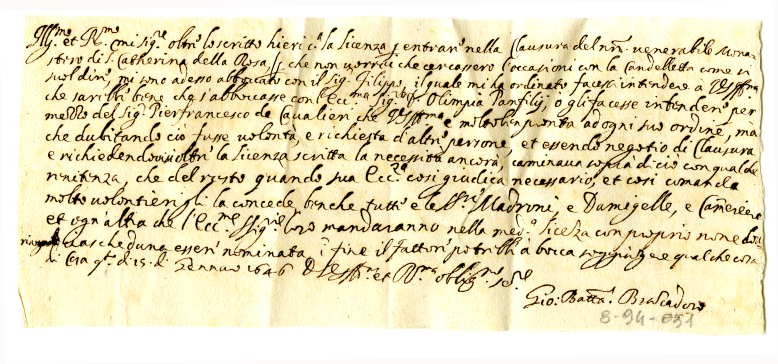 Ill.mo et R.mo mi Sig.re oltre lo scritto hieri c.a la licenza p entrare nella Clausura del nr̃o venerabile Mona
stero di S. Catherina della Rosa, p che non vorria che cercassero l'occasioni con la Candelletta come si
suol dire, mi sono adesso abboccato con il Sig. Filippo, il quale mi ha ordinato facessi intendere a
che sarebbe bene che s'abboccasse con l'Ecc.ma Sig. Olimpia Panfilij, o gli facesse intendere per
mezzo del Sig. Pierfrancesco de Cavalieri che è molto ben pronta ad ogni suo ordine, ma
che dubitando ciò fusse volontà, e richiesta d'altre persone, et essendo negotio di Clausura
e richiedendovisi oltre la licenza scritta la necessità ancora, caminava sopra di ciò con qualche
renitenza, che del resto quando sua Ecc.za così giudica necessario, et così comanda
molto volontieri gli la concede, benche tutte e le Madroni, e Damigelle, e Cameriere
et ogn'altra che l'Ecc.me loro mandaranno nella med. licenza con proprio nome
ciascheduna esser nominata, i fine il fattore potrebbe a bocca soggiungere qualche cosa
di Casa q.to dì 15. di Gennaro 1646 D et R.ma oblig.mo
Gio: Batta. Brascadoro
8-94-051